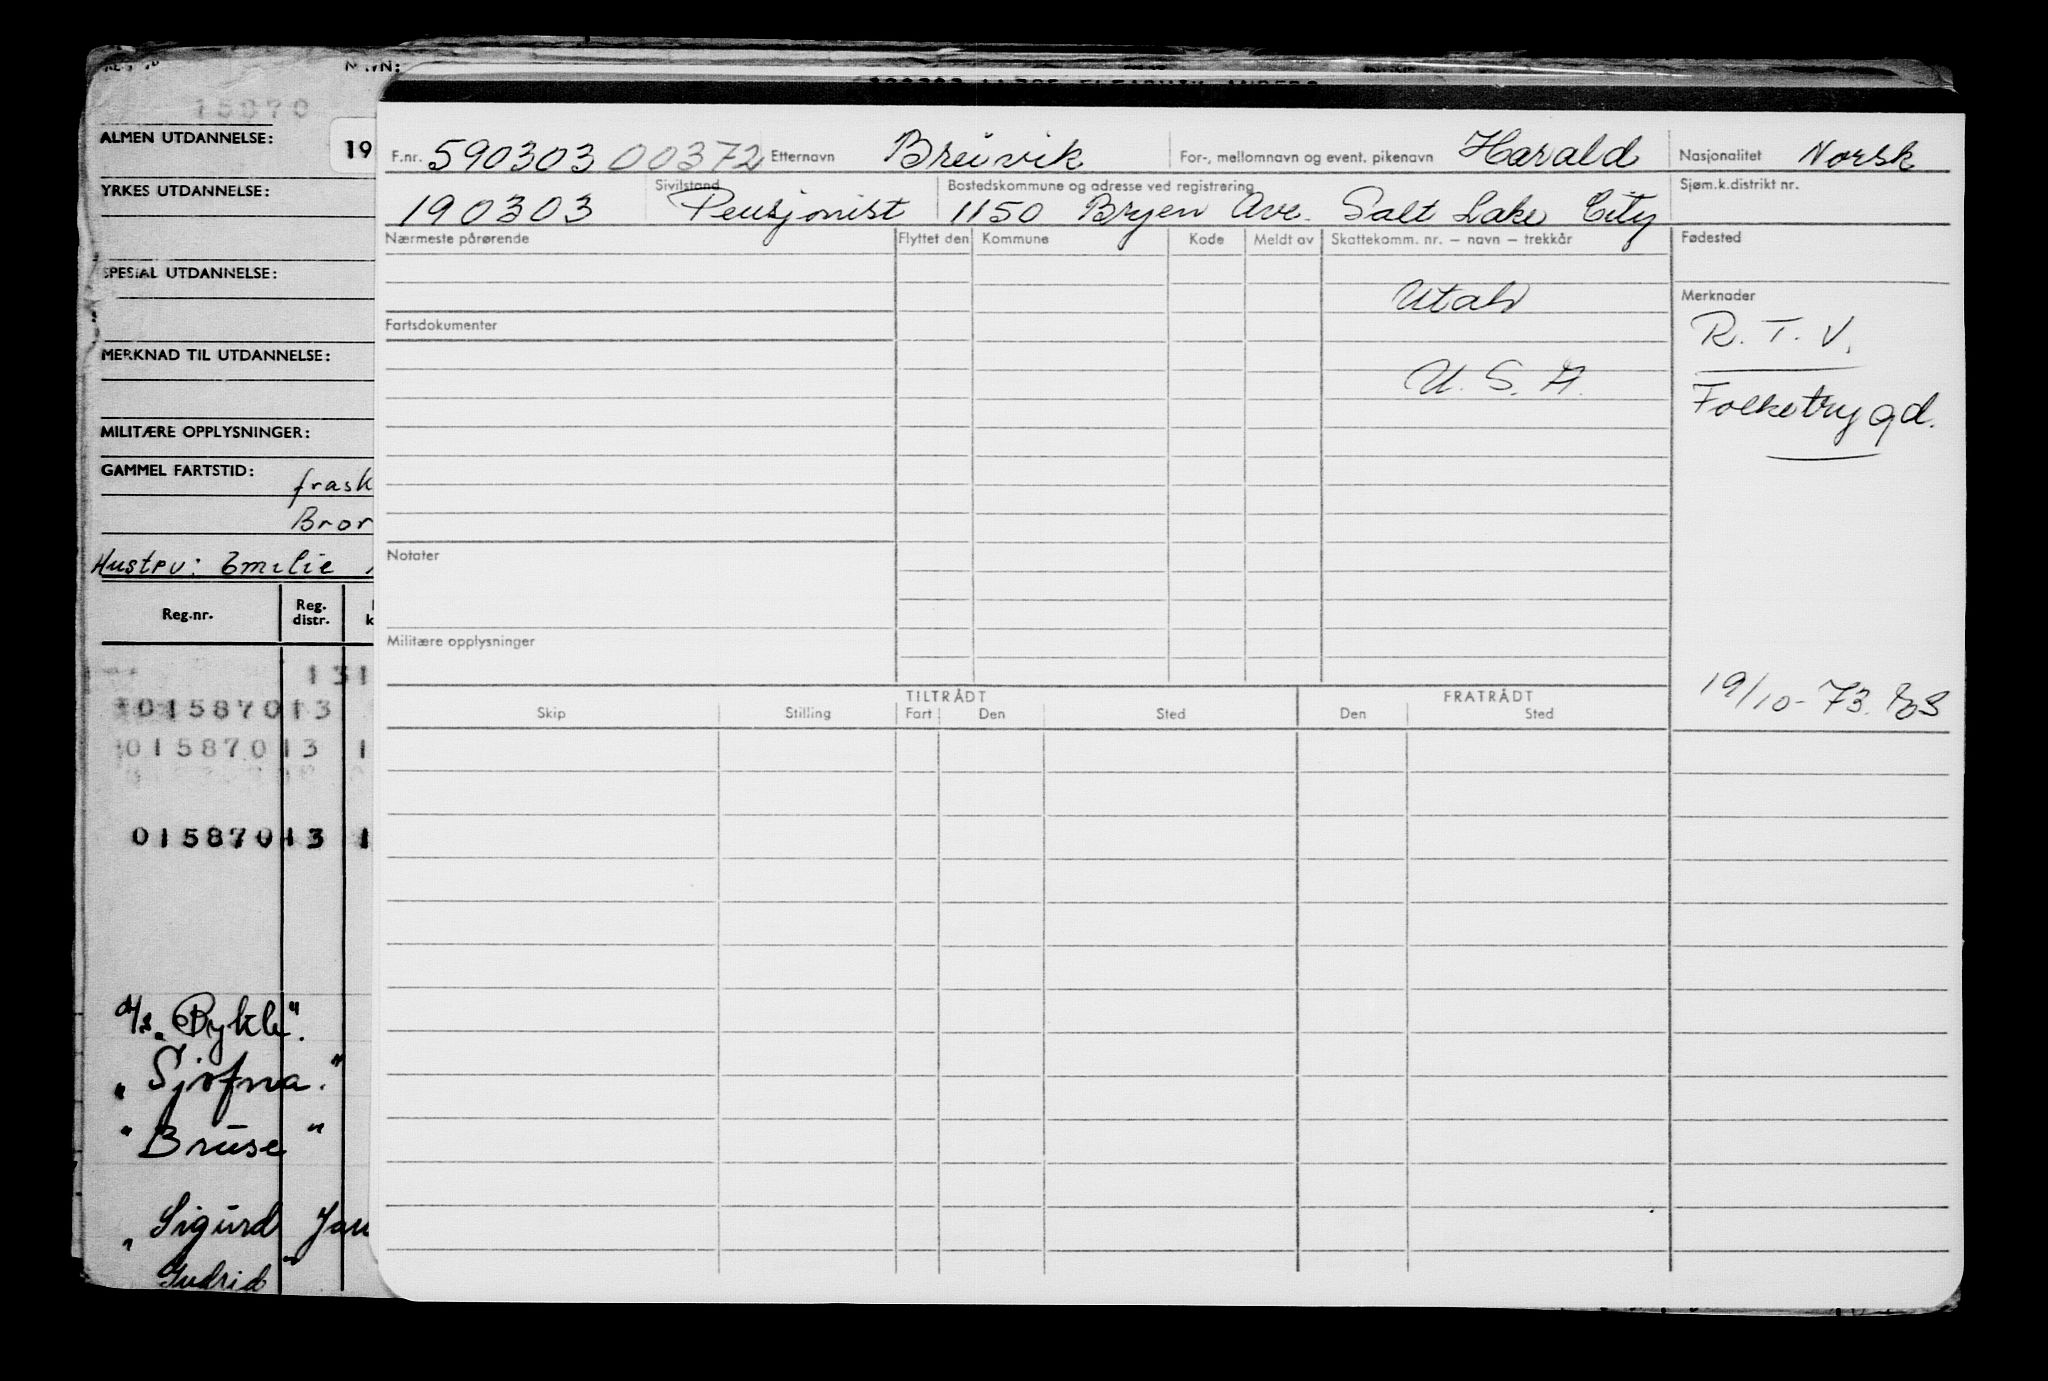 NAVN:
15870
ALMEN UTDANNELSE:
19
YRKES UTDANNELSE:
SPESIAL UTDANNELSE:
MERKNAD TIL UTDANNELSE:
MILITÆRE OPPLYSNINGER:
GAMMEL FARTSTID:
frask
Bror
Hustru: Emilie
Reg.nr. Reg. distr.
131
01587013
01587013 1
01587013 1
"Bykle".
" Sjofna."
" Bruse "
" Sigurd Jar
Gudrid "
F.nr. 590303 00372 Etternavn Breivik For-, mellomnavn og event. pikenavn Harald Nasjonalitet Norsk
Sivilstand Bostedskommune og adresse ved registrering Sjøm.k.distrikt nr.
190303 Pensjonist 1150 Bryen Ave. Salt Lake City
Nærmeste pårørende Flyttet den Kommune Kode Meldt av Skattekomm. nr. – navn – trekkår Fødested
Utah
Merknader
Fartsdokumenter
R. T. V.
U. S. A.
Folketrygd.
Notater
Militære opplysninger
19/10-73.
TILTRÅDT FRATRÅDT
Skip Stilling Fart Den Sted Den Sted